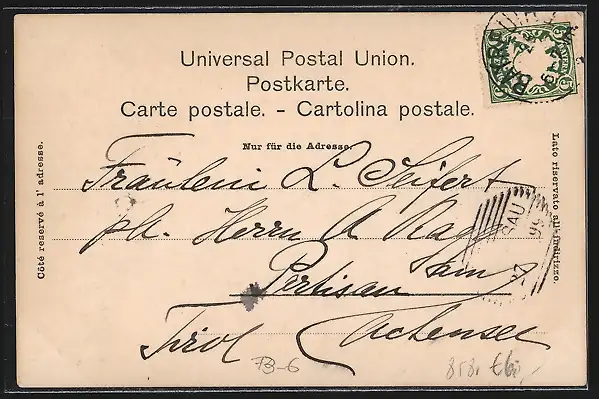 Universal Postal Union.
Postkarte.
Carte postale. - Cartolina postale.
Nur für die Adresse.
Côté reservé à l' adresse.
Lato riservato all'indirizzo.
Fräulein L. Seifert
Herrn A
Pertisau am
Tirol Achensee
BAYERN
5
SAU
B-6